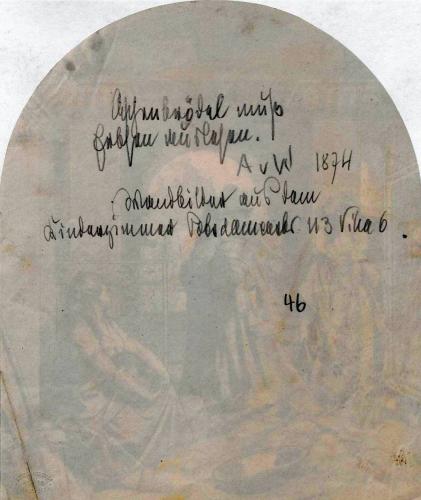 Aschenbrödel muß
Erbsen auslesen.
A v W 1874
Wandbilder aus dem
Kinderzimmer Potsdamerstr. 113 Villa 6.
46